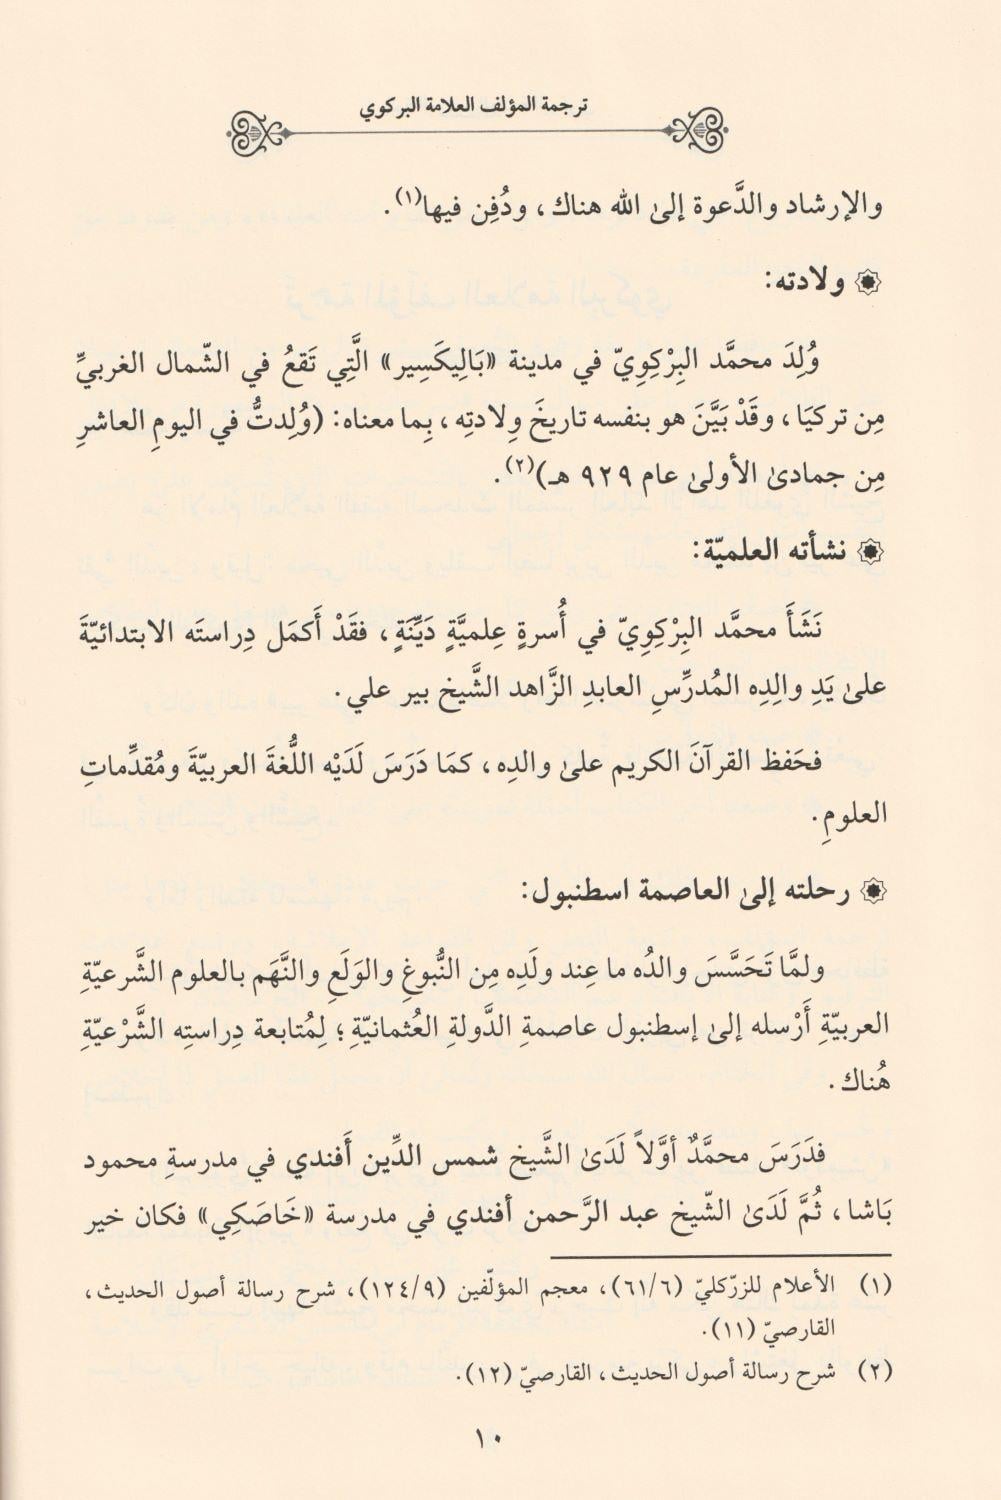 ترجمة المؤلف العلامة البركوي
والإرشاد والدَّعوة إلىٰ الله هناك، ودُفِن فيها(١).
ولادته:
وُلِدَ محمَّد البِرْكِوِيّ في مدينة «بَالِيكَسِير» الَّتِي تَقعُ في الشّمال الغربيِّ
مِن تركيَا، وقَدْ بَيَّنَ هو بنفسه تاريخَ وِلادتِه، بِما معناه: (وُلِدتُّ في اليومِ العاشرِ
مِن جمادىٰ الأولىٰ عام ٩٢٩ هـ)(٢).
نشأته العلميّة:
نَشَأَ محمَّد البِرْكِوِيّ في أُسرةٍ عِلميَّةٍ دَيِّنَةٍ، فقَدْ أَكمَل دِراستَه الابتدائيّةَ
علىٰ يَدِ والِدِه المُدرِّسِ العابدِ الزَّاهد الشَّيخ بير علي.
فحَفظ القرآنَ الكريم علىٰ والدِه، كمَا دَرَسَ لَدَيْه اللُّغةَ العربيّةَ ومُقدِّماتِ
العلومِ.
رحلته إلىٰ العاصمة اسطنبول:
ولمَّا تَحَسَّسَ والدُه ما عِند ولَدِه مِن النُّبوغِ والوَلَعِ والنَّهَم بالعلوم الشَّرعيّةِ
العربيّةِ أَرْسله إلىٰ إسطنبول عاصمةِ الدَّولةِ العُثمانيّةِ؛ لِمُتابعة دِراستِه الشَّرْعيّةِ
هُناك.
فدَرَسَ محمَّدٌ أوَّلاً لَدَىٰ الشَّيخ شمس الدِّين أَفندي في مدرسةِ محمود
بَاشا، ثُمَّ لَدَىٰ الشّيخ عبد الرَّحمن أفندي في مدرسة «خَاصَكِي» فكان خير
(١) الأعلام للزرّكليّ (٦١/٦)، معجم المؤلّفين (١٢٤/٩)، شرح رسالة أصول الحديث،
القارصيّ (١١).
(٢) شرح رسالة أصول الحديث، القارصيّ (١٢).
١٠